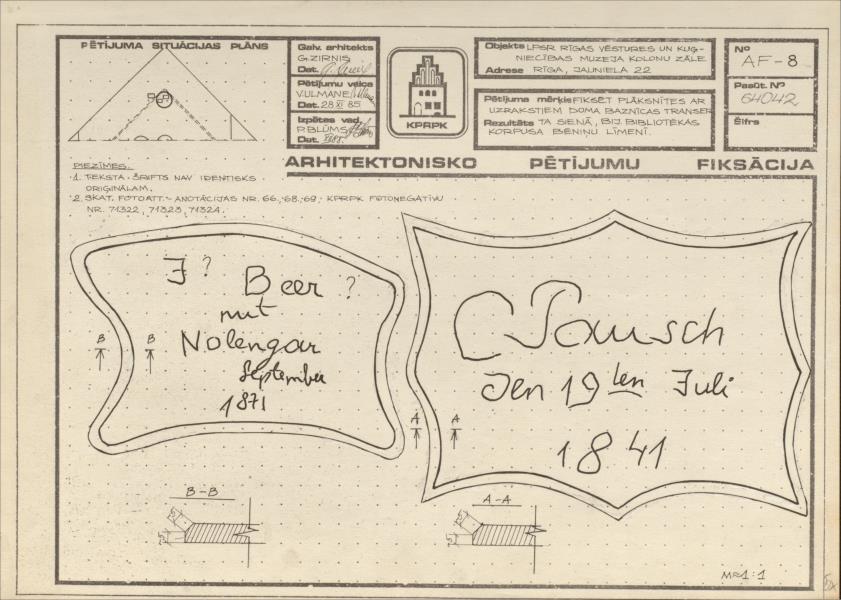 PĒTĪJUMA SITUĀCIJAS PLĀNS
Galv. arhitekts
G. ZIRNIS
Dat.
Pētījumu veica
V. ULMANE
Dat. 28 XI 85
Izpētes vad.
P. BLŪMS
Dat.
KPRPK
Objekts LPSR RĪGAS VĒSTURES UN KUĢ-
NIECĪBAS MUZEJA KOLONU ZĀLE
Adrese RĪGA, JAUNIELA 22
Pētījuma mērķis FIKSĒT PLĀKSNĪTES AR
UZRAKSTIEM DOMA BAZNĪCAS TRANSEP
Rezultāts TA SIENĀ, BIJ. BIBLIOTĒKAS
KORPUSA BĒNIŅU LĪMENĪ.
No
AF-8
Pasūt. No
64042
Šifrs
ARHITEKTONISKO PĒTĪJUMU FIKSĀCIJA
PIEZĪMES.
1. TEKSTA ŠRIFTS NAV IDENTISKS
ORIĢINĀLAM.
2. SKAT. FOTOATT.-ANOTĀCIJAS NR. 66, 68, 69, KPRPK FOTONEGATĪVU
NR. 71322, 71323, 71324.
J ? Beer ?
mit
Nolengar
September
1871
B B
C Tausch
Den 19 ten Juli
1841
A A
B-B
A-A
M 1:1